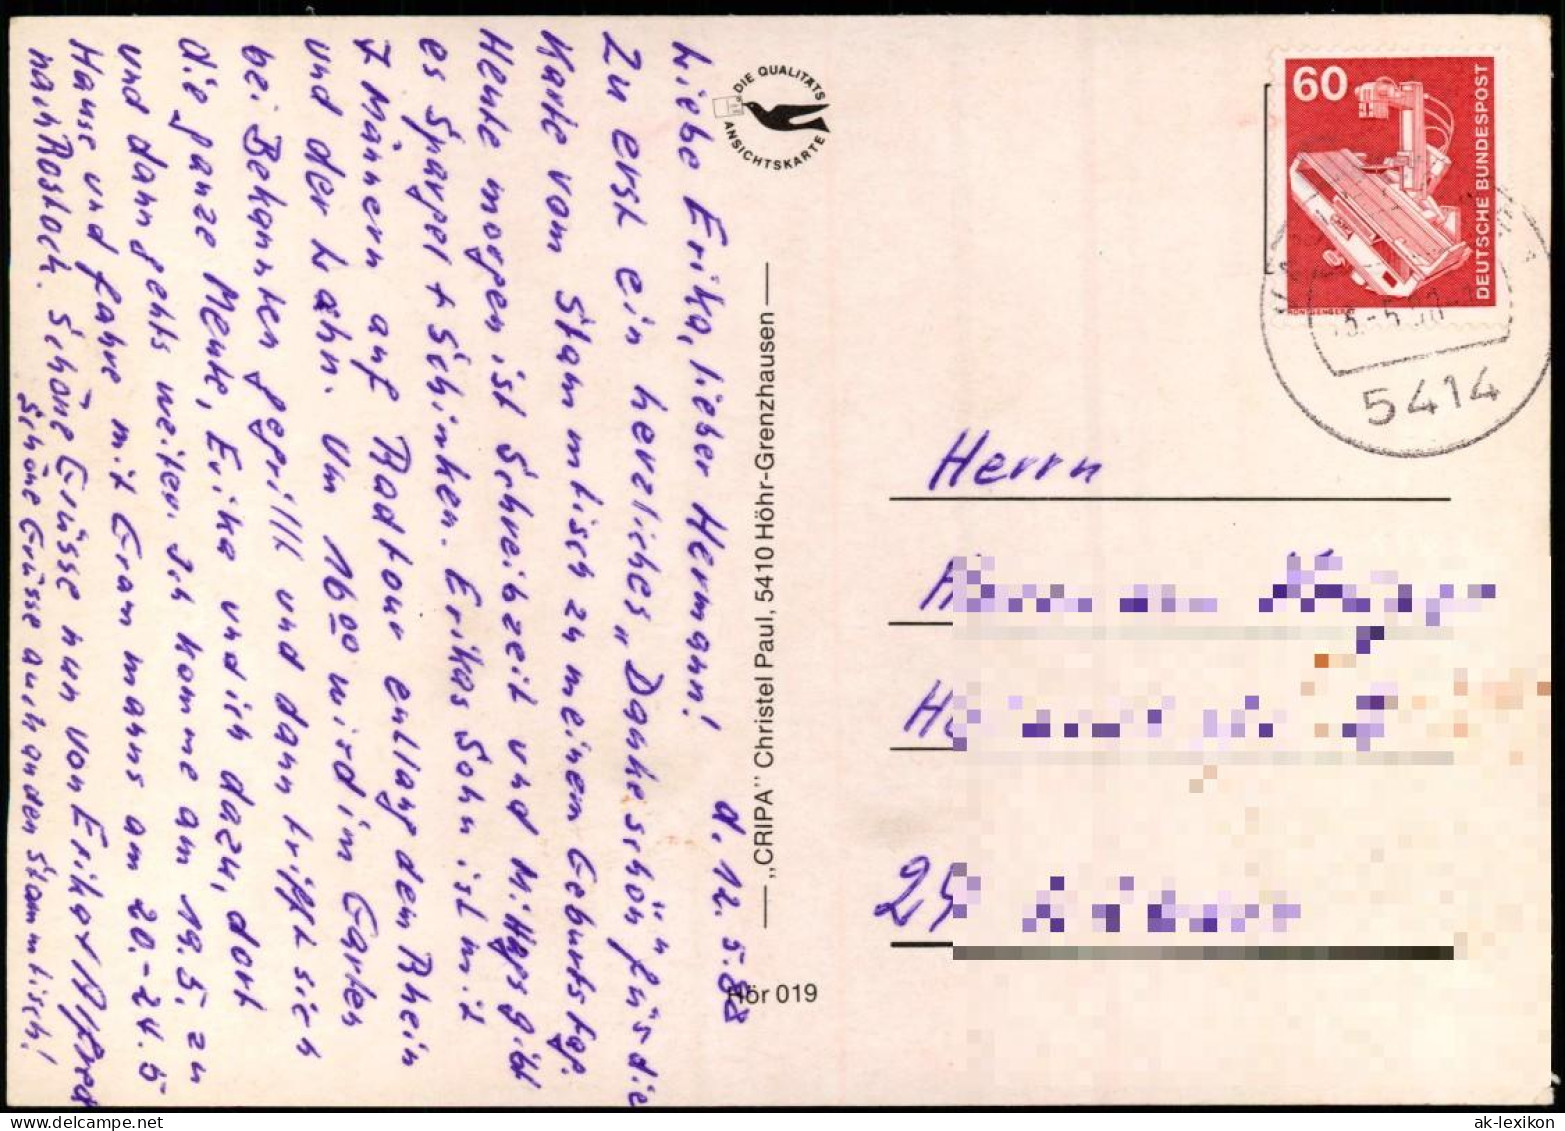 d. 12.5.88
Liebe Erika, lieber Hermann!
Zu erst ein herzliches „Dankeschön" für die
Karte vom Stammtisch zu meinem Geburtstag.
Heute morgen ist Schreibzeit und Mittags gibt
es Spargel + Schinken. Erikas Sohn ist mit
7 Männern auf Radtour entlang dem Rhein
und der Lahn. Um 16 00 wird im Garten
bei Bekannten gegrillt und dann trifft sich
die ganze Meute, Erika und ich dazu, dort
und dann gehts weiter. Ich komme am 19.5. zu
Hause und fahre mit Gram manns am 20.-24.5
nach Rostock. Schöne Grüsse nun von Erika + Alfred
Schöne Grüsse auch an den Stammtisch!
„DIE QUALITÄTS
ANSICHTSKARTE
„CRIPA" Christel Paul, 5410 Höhr-Grenzhausen
Hör 019
60
DEUTSCHE BUNDESPOST
RÖNTGENGERÄT
5414
Herrn